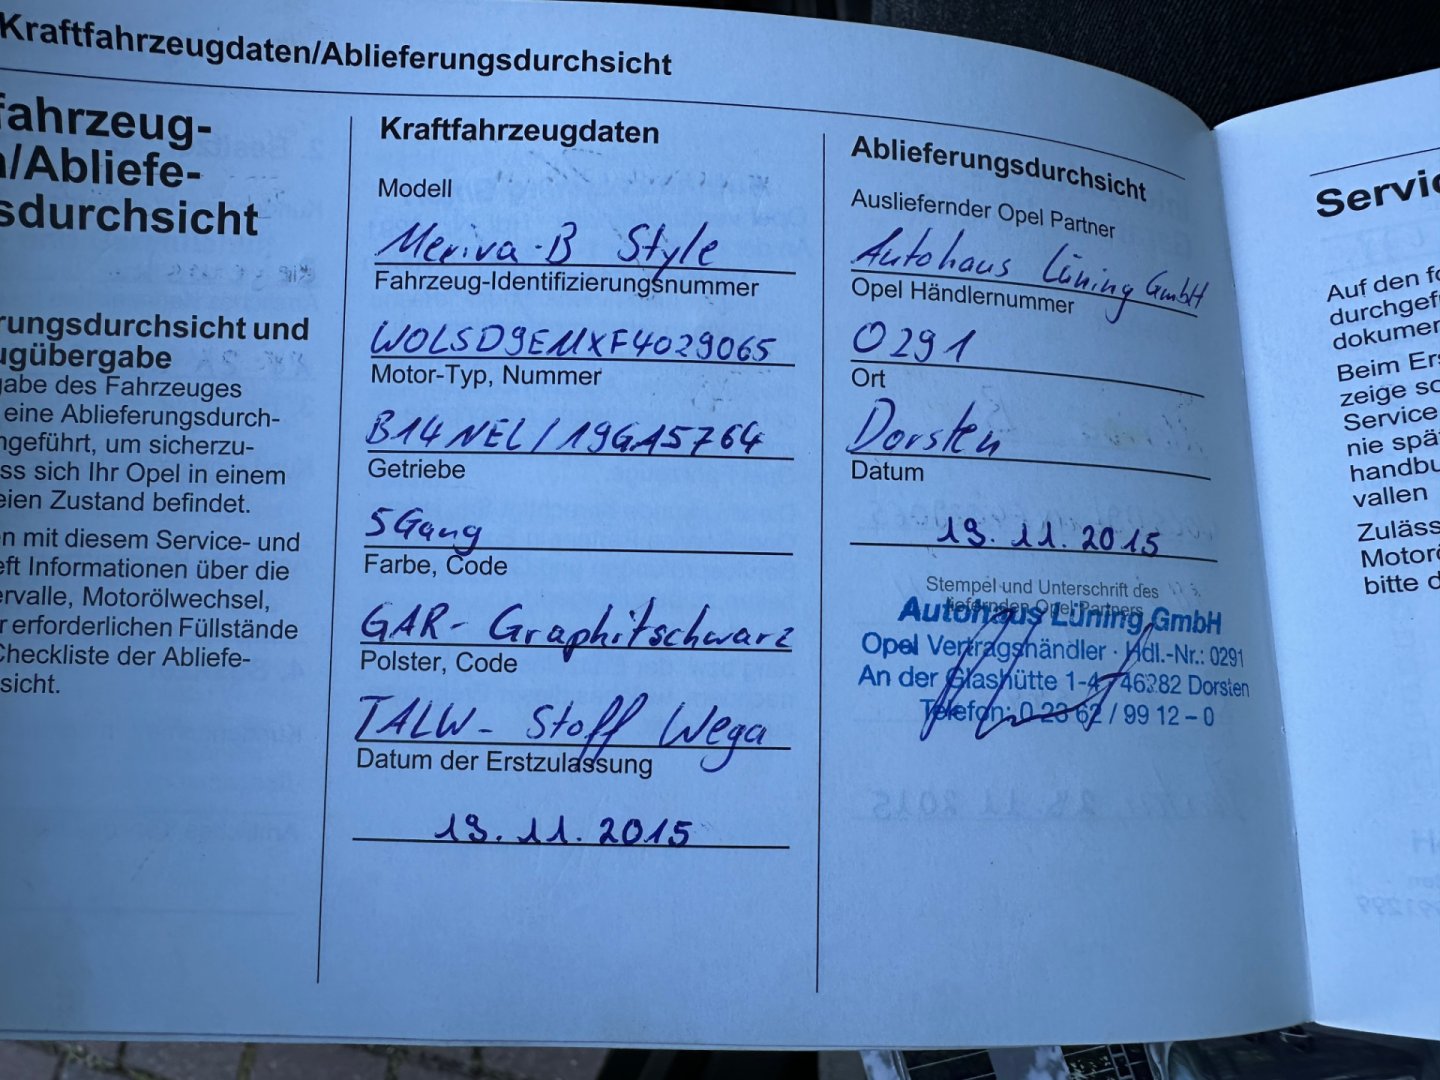 Kraftfahrzeugdaten/Ablieferungsdurchsicht
fahrzeug-
/Abliefe-
sdurchsicht
rungsdurchsicht und
ugübergabe
gabe des Fahrzeuges
eine Ablieferungsdurch-
hgeführt, um sicherzu-
ss sich Ihr Opel in einem
eien Zustand befindet.
en mit diesem Service- und
eft Informationen über die
ervalle, Motorölwechsel,
r erforderlichen Füllstände
Checkliste der Abliefe-
sicht.
Kraftfahrzeugdaten
Modell
Meriva-B Style
Fahrzeug-Identifizierungsnummer
WOLSD9EMXF4029065
Motor-Typ, Nummer
B14NEL/19GA5764
Getriebe
5Gang
Farbe, Code
GAR- Graphitschwarz
Polster, Code
TALW- Stoff Wega
Datum der Erstzulassung
19.11.2015
Ablieferungsdurchsicht
Ausliefernder Opel Partner
Autohaus Lüning GmbH
Opel Händlernummer
0291
Ort
Dorsten
Datum
19.11.2015
Stempel und Unterschrift des
liefernden Opel Partners
Autohaus Lüning GmbH
Opel Vertragshändler · Hdl.-Nr.: 0291
An der Glashütte 1-4 46282 Dorsten
Telefon: 0 23 62 / 99 12 – 0
Servic
Auf den fo
durchgef
dokumen
Beim Ers
zeige so
Service
nie spä
handbu
vallen
Zuläss
Motorö
bitte d